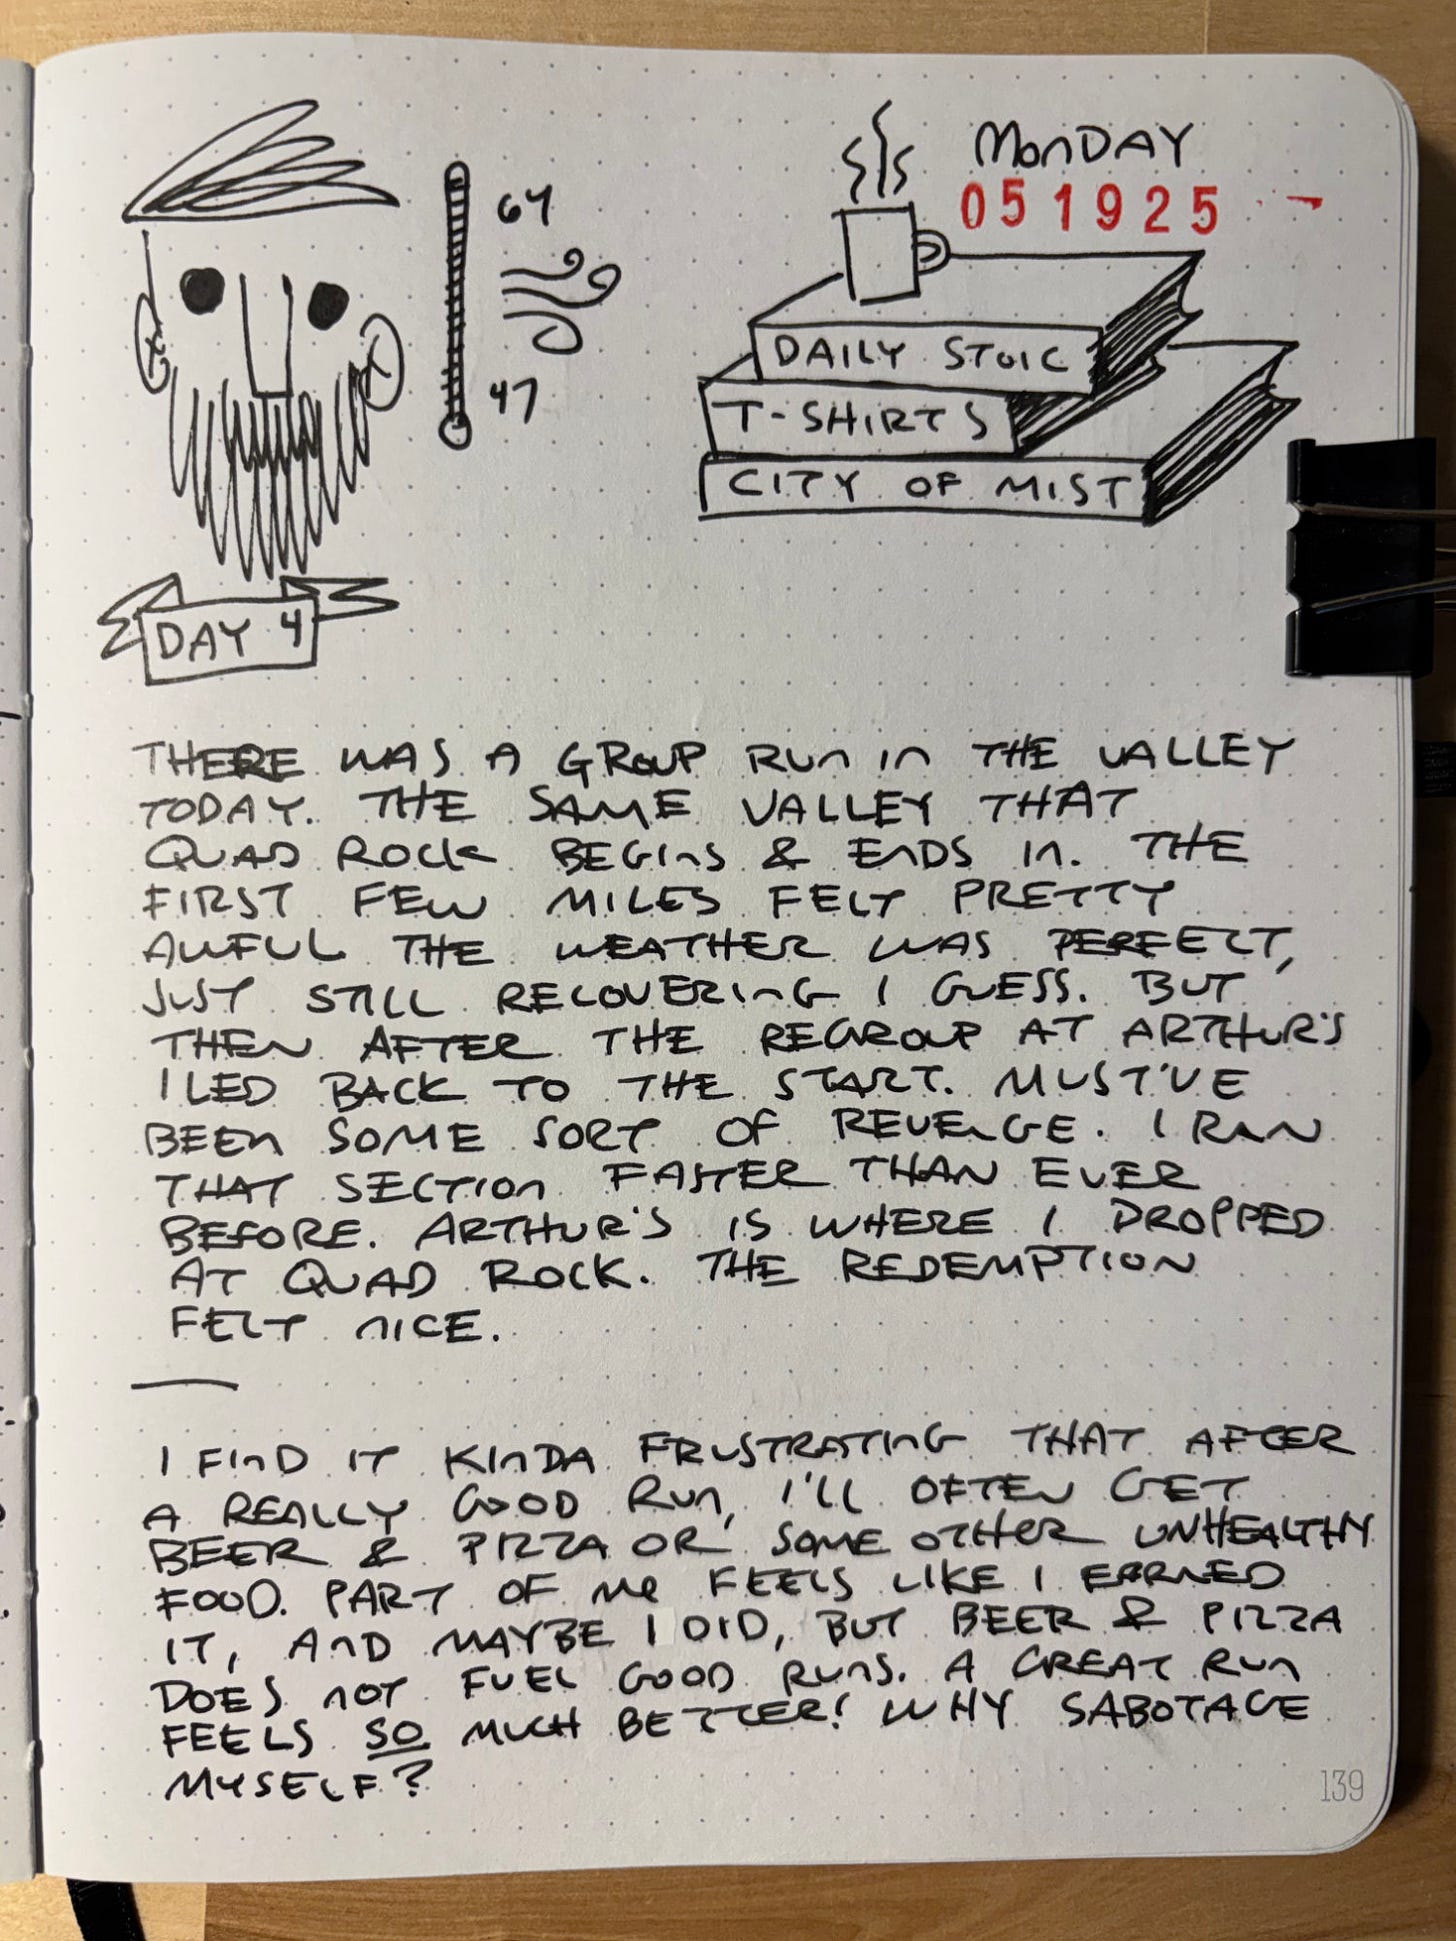 MONDAY
051925
64
47
DAILY STOIC
T-SHIRTS
CITY OF MIST
DAY 4
THERE WAS A GROUP RUN IN THE VALLEY
TODAY. THE SAME VALLEY THAT
QUAD ROCK BEGINS & ENDS IN. THE
FIRST FEW MILES FELT PRETTY
AWFUL THE WEATHER WAS PERFECT,
JUST STILL RECOVERING I GUESS. BUT
THEN AFTER THE REGROUP AT ARTHUR'S
I LED BACK TO THE START. MUST'VE
BEEN SOME SORT OF REVENGE. I RAN
THAT SECTION FASTER THAN EVER
BEFORE. ARTHUR'S IS WHERE I DROPPED
AT QUAD ROCK. THE REDEMPTION
FELT NICE.
I FIND IT KINDA FRUSTRATING THAT AFTER
A REALLY GOOD RUN, I'LL OFTEN GET
BEER & PIZZA OR SOME OTHER UNHEALTHY
FOOD. PART OF ME FEELS LIKE I EARNED
IT, AND MAYBE I DID, BUT BEER & PIZZA
DOES NOT FUEL GOOD RUNS. A GREAT RUN
FEELS SO MUCH BETTER! WHY SABOTAGE
MYSELF?
139